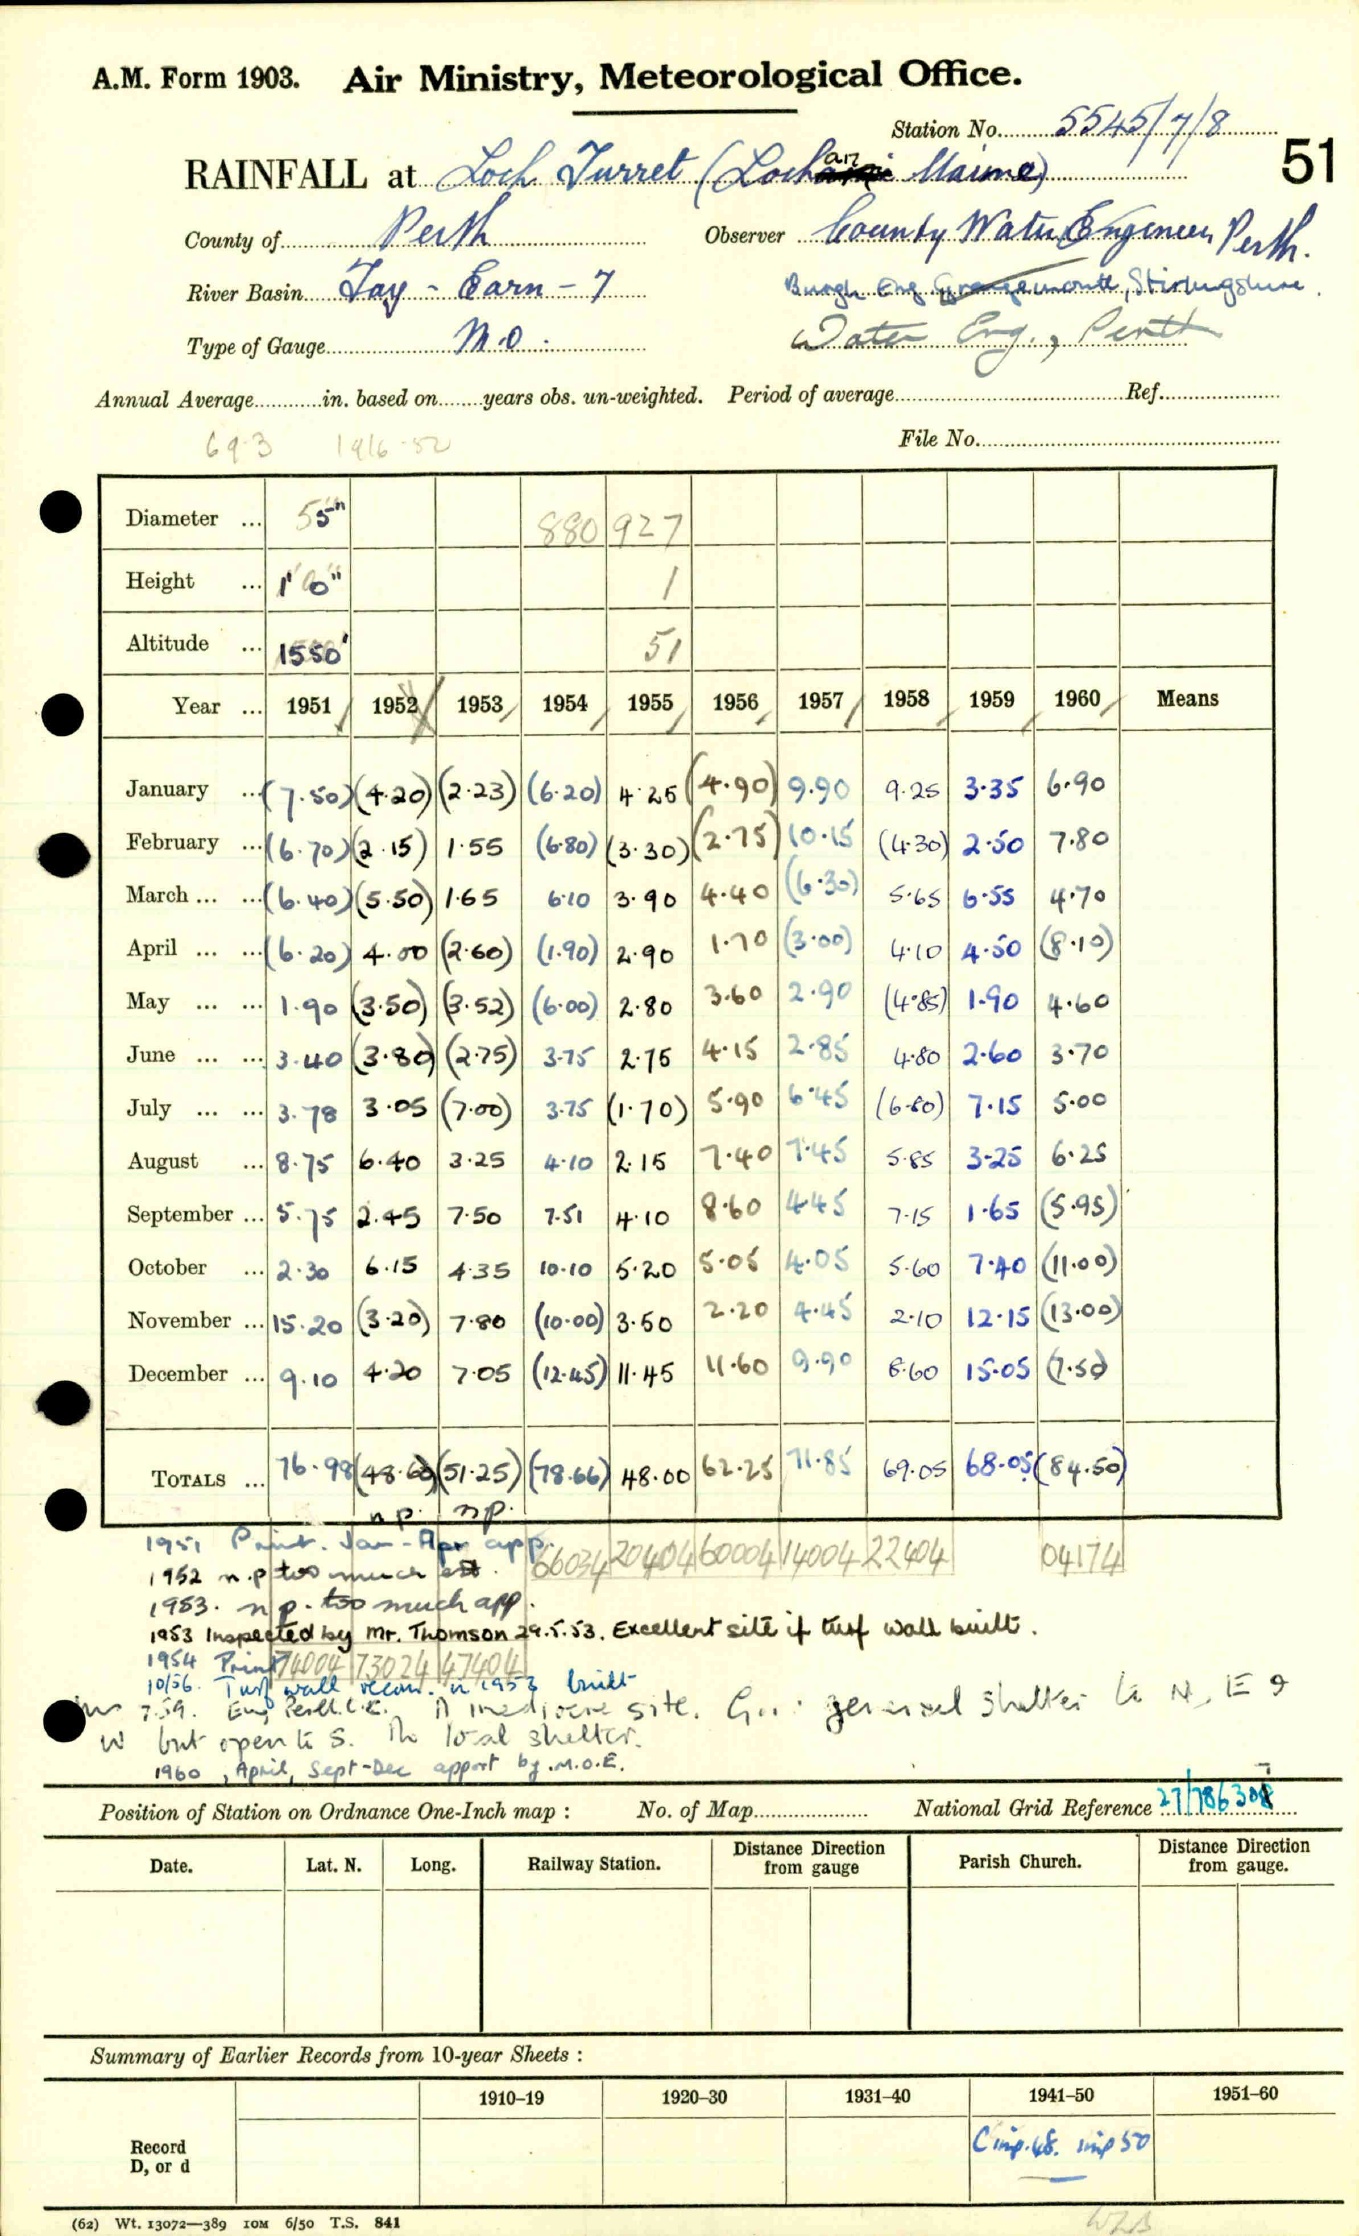 A.M. Form 1903. Air Ministry, Meteorological Office.
Station No. 5545/7/8
51
RAINFALL at Loch Turret (Lochan Maime)
County of Perth Observer County Water Engineer, Perth.
River Basin Tay - Earn - 7 Burgh Eng Grangemouth, Stirlingshire.
Type of Gauge M.O. Water Eng., Perth
Annual Average in. based on years obs. un-weighted. Period of average Ref.
69.3 1916-52 File No.
Diameter ... 5" 880 927
Height ... 1' 0" 1
Altitude ... 1550' 51
Year ... 1951 1952 1953 1954 1955 1956 1957 1958 1959 1960 Means
January ... (7.50) (4.20) (2.23) (6.20) 4.25 (4.90) 9.90 9.25 3.35 6.90
February ... (6.70) (2.15) 1.55 (6.80) (3.30) (2.75) 10.15 (4.30) 2.50 7.80
March ... ... (6.40) (5.50) 1.65 6.10 3.90 4.40 (6.30) 5.65 6.55 4.70
April ... ... (6.20) 4.00 (2.60) (1.90) 2.90 1.70 (3.00) 4.10 4.50 (8.10)
May ... ... 1.90 (3.50) (3.52) (6.00) 2.80 3.60 2.90 (4.85) 1.90 4.60
June ... ... 3.40 (3.80) (2.75) 3.75 2.75 4.15 2.85 4.80 2.60 3.70
July ... ... 3.78 3.05 (7.00) 3.75 (1.70) 5.90 6.45 (6.80) 7.15 5.00
August ... 8.75 6.40 3.25 4.10 2.15 7.40 7.45 5.85 3.25 6.25
September ... 5.75 2.45 7.50 7.51 4.10 8.60 4.45 7.15 1.65 (5.95)
October ... 2.30 6.15 4.35 10.10 5.20 5.05 4.05 5.60 7.40 (11.00)
November ... 15.20 (3.20) 7.80 (10.00) 3.50 2.20 4.45 2.10 12.15 (13.00)
December ... 9.10 4.20 7.05 (12.45) 11.45 11.60 9.90 8.60 15.05 (7.50)
TOTALS ... 76.98 (48.60) (51.25) (78.66) 48.00 62.25 71.85 69.05 68.05 (84.50)
n.p. n.p.
1951 Print. Jan-Apr app. 66034 20404 60004 14004 22404 04174
1952 n.p too much est.
1953. n p. too much app.
1953 Inspected by Mr. Thomson 29.5.53. Excellent site if turf wall built.
1954 Print 74004 73024 47404
10/56. Turf wall recom. in 1953 built
7.59. Eng Perth C.C. A mediocre site. general shelter to N, E &
W but open to S. No local shelter.
1960, April, Sept-Dec apport by M.O.E.
Position of Station on Ordnance One-Inch map : No. of Map National Grid Reference 27/786308
Date. Lat. N. Long. Railway Station. Distance Direction from gauge Parish Church. Distance Direction from gauge.
Summary of Earlier Records from 10-year Sheets :
1910–19 1920–30 1931–40 1941–50 1951–60
Record
D, or d
C imp.48. imp 50
(62) Wt. 13072—389 10M 6/50 T.S. 841